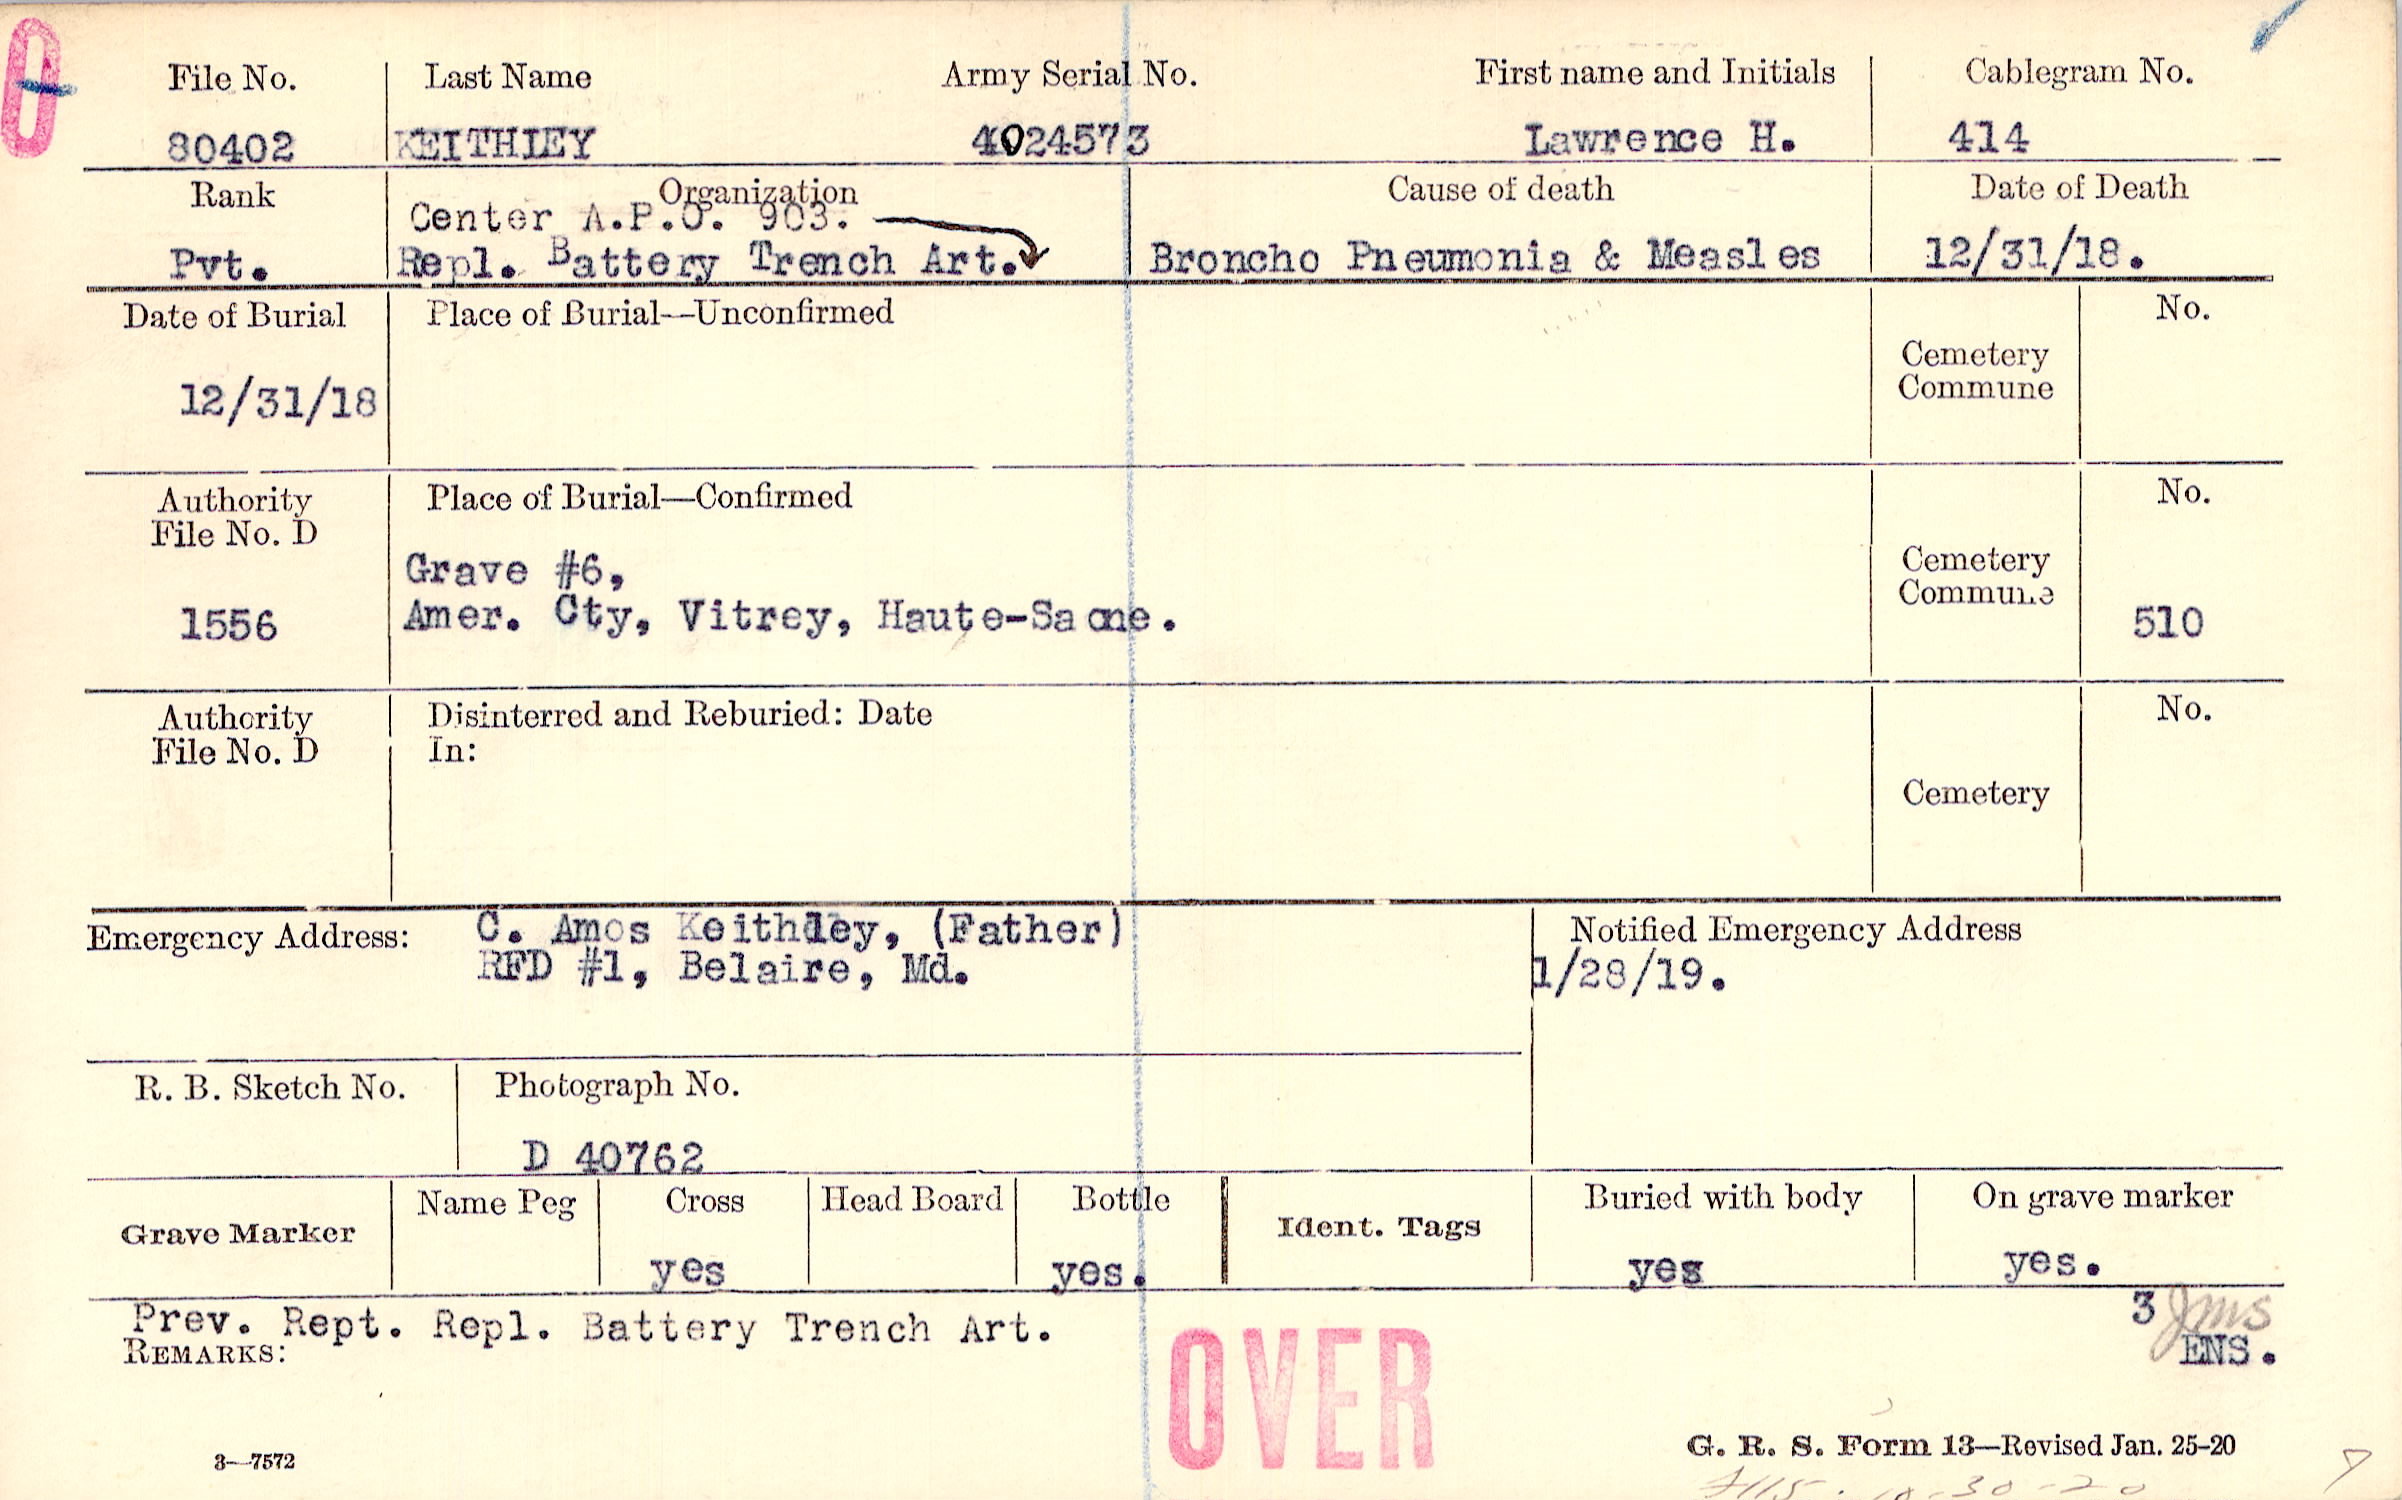 0
File No. Last Name Army Serial No. First name and Initials Cablegram No.
80402 KEITHIEY 4024573 Lawrence H. 414
Rank Organization Cause of death Date of Death
Center A.P.O. 903.
Pvt. Repl. Battery Trench Art. Broncho Pneumonia & Measles 12/31/18.
Date of Burial Place of Burial—Unconfirmed No.
Cemetery
Commune
12/31/18
Authority Place of Burial—Confirmed No.
File No. D
Grave #6, Cemetery
Commune
1556 Amer. Cty, Vitrey, Haute-Saone. 510
Authority Disinterred and Reburied: Date No.
File No. D In:
Cemetery
Emergency Address: C. Amos Keithley, (Father) Notified Emergency Address
RFD #1, Belaire, Md. 1/28/19.
R. B. Sketch No. Photograph No.
D 40762
Grave Marker Name Peg Cross Head Board Bottle Ident. Tags Buried with body On grave marker
yes yes. yes yes.
Prev. Rept. Repl. Battery Trench Art. 3 Jms
REMARKS: ENS.
OVER
3—7572 G. R. S. Form 13—Revised Jan. 25-20